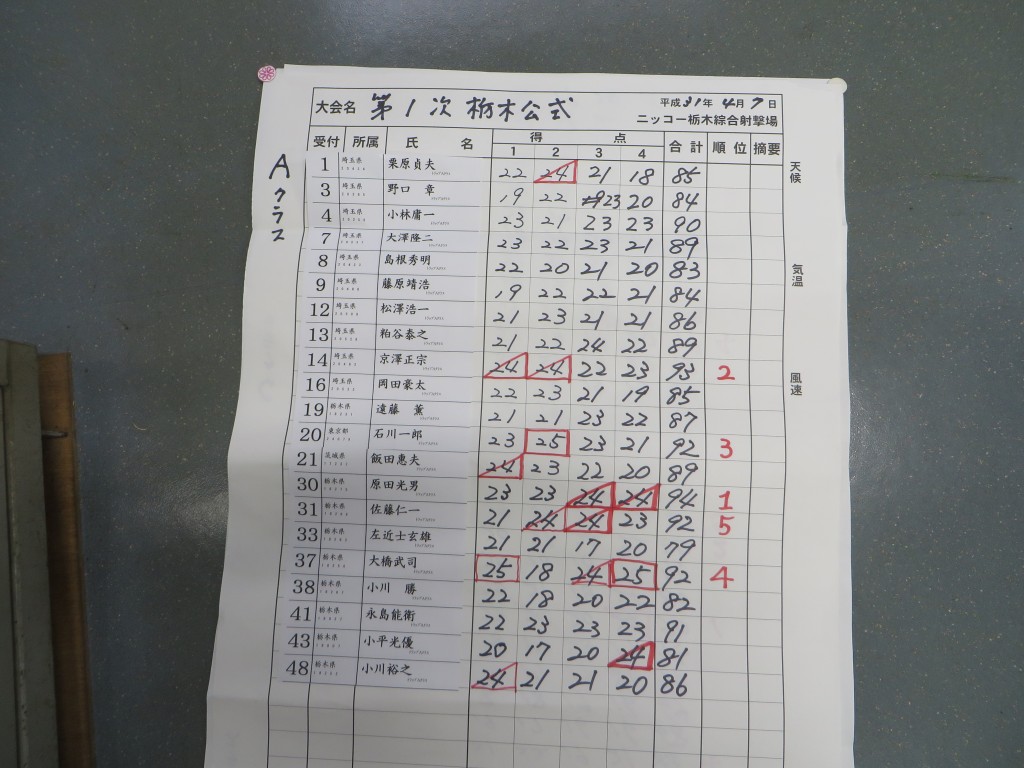 大会名 第1次栃木公式 平成31年4月7日
ニッコー栃木綜合射撃場
受付 所属 氏 名 得 点 合計 順位 摘要
1 2 3 4
Aクラス
天候
気温
風速
1 埼玉県 栗原貞夫 22 24 21 18 85
3 埼玉県 野口 章 19 22 23 20 84
4 埼玉県 小林庸一 23 21 23 23 90
7 埼玉県 大澤隆二 23 22 23 21 89
8 埼玉県 島根秀明 22 20 21 20 83
9 埼玉県 藤原靖浩 19 22 22 21 84
12 埼玉県 松澤浩一 21 23 21 21 86
13 埼玉県 粕谷泰之 21 22 24 22 89
14 埼玉県 京澤正宗 24 24 22 23 93 2
16 埼玉県 岡田豪太 22 23 21 19 85
19 栃木県 遠藤 薫 21 21 23 22 87
20 東京都 石川一郎 23 25 23 21 92 3
21 茨城県 飯田恵夫 24 23 22 20 89
30 栃木県 原田光男 23 23 24 24 94 1
31 栃木県 佐藤仁一 21 24 24 23 92 5
33 栃木県 左近士玄雄 21 21 17 20 79
37 栃木県 大橋武司 25 18 24 25 92 4
38 栃木県 小川 勝 22 18 20 22 82
41 栃木県 永島能衛 22 23 23 23 91
43 栃木県 小平光優 20 17 20 24 81
48 栃木県 小川裕之 24 21 21 20 86